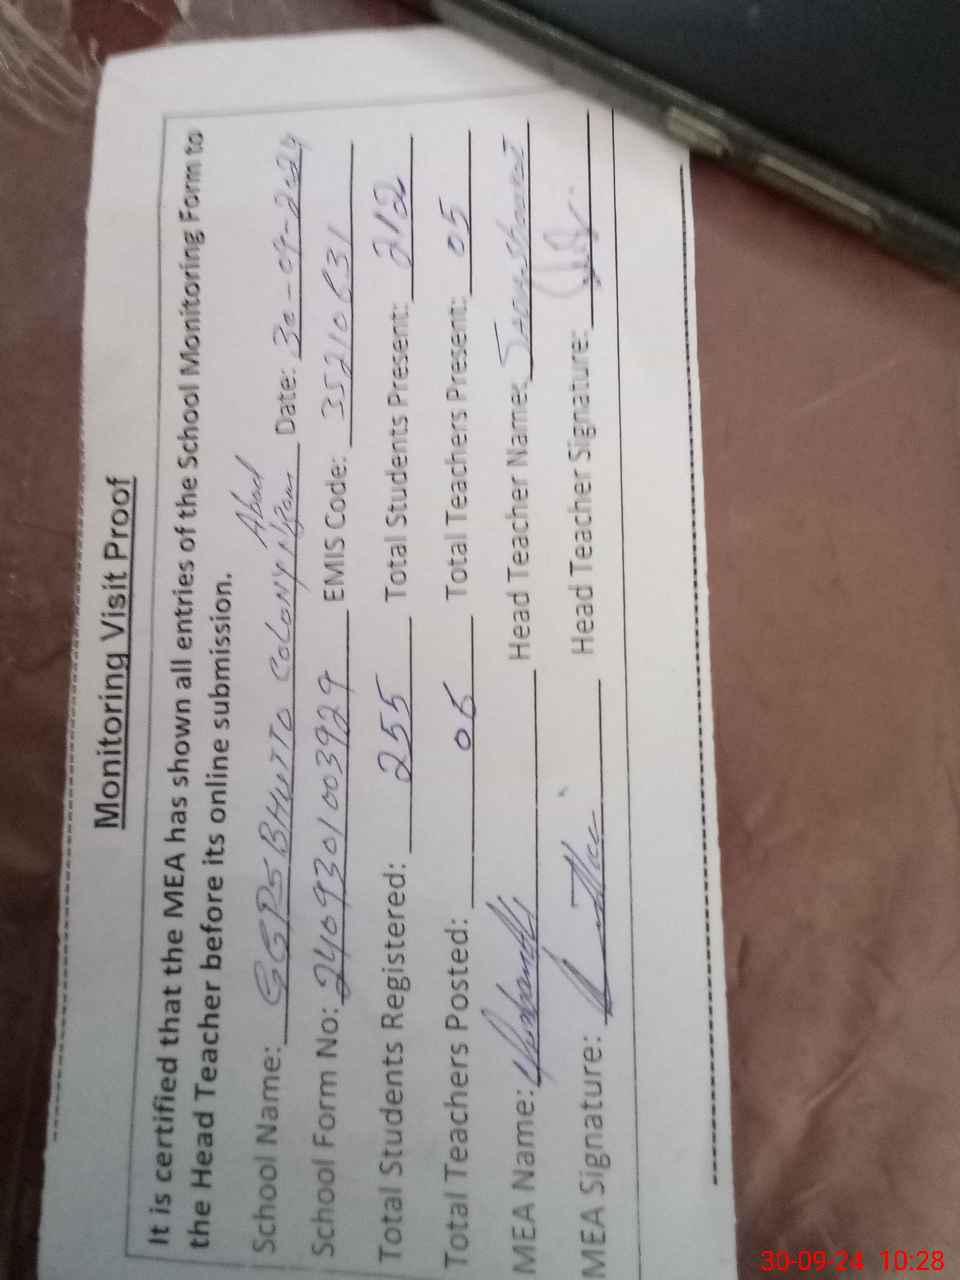 Monitoring Visit Proof
It is certified that the MEA has shown all entries of the School Monitoring Form to
the Head Teacher before its online submission.
Abad
School Name: GGPS BHUTTO COLONY Date: 30-09-2024
School Form No: 24093010039 29 EMIS Code: 35210631
Total Students Registered: 255 Total Students Present: 212
Total Teachers Posted: 06 Total Teachers Present: 05
MEA Name: Head Teacher Name:
MEA Signature: Head Teacher Signature:
30-09-24 10:28